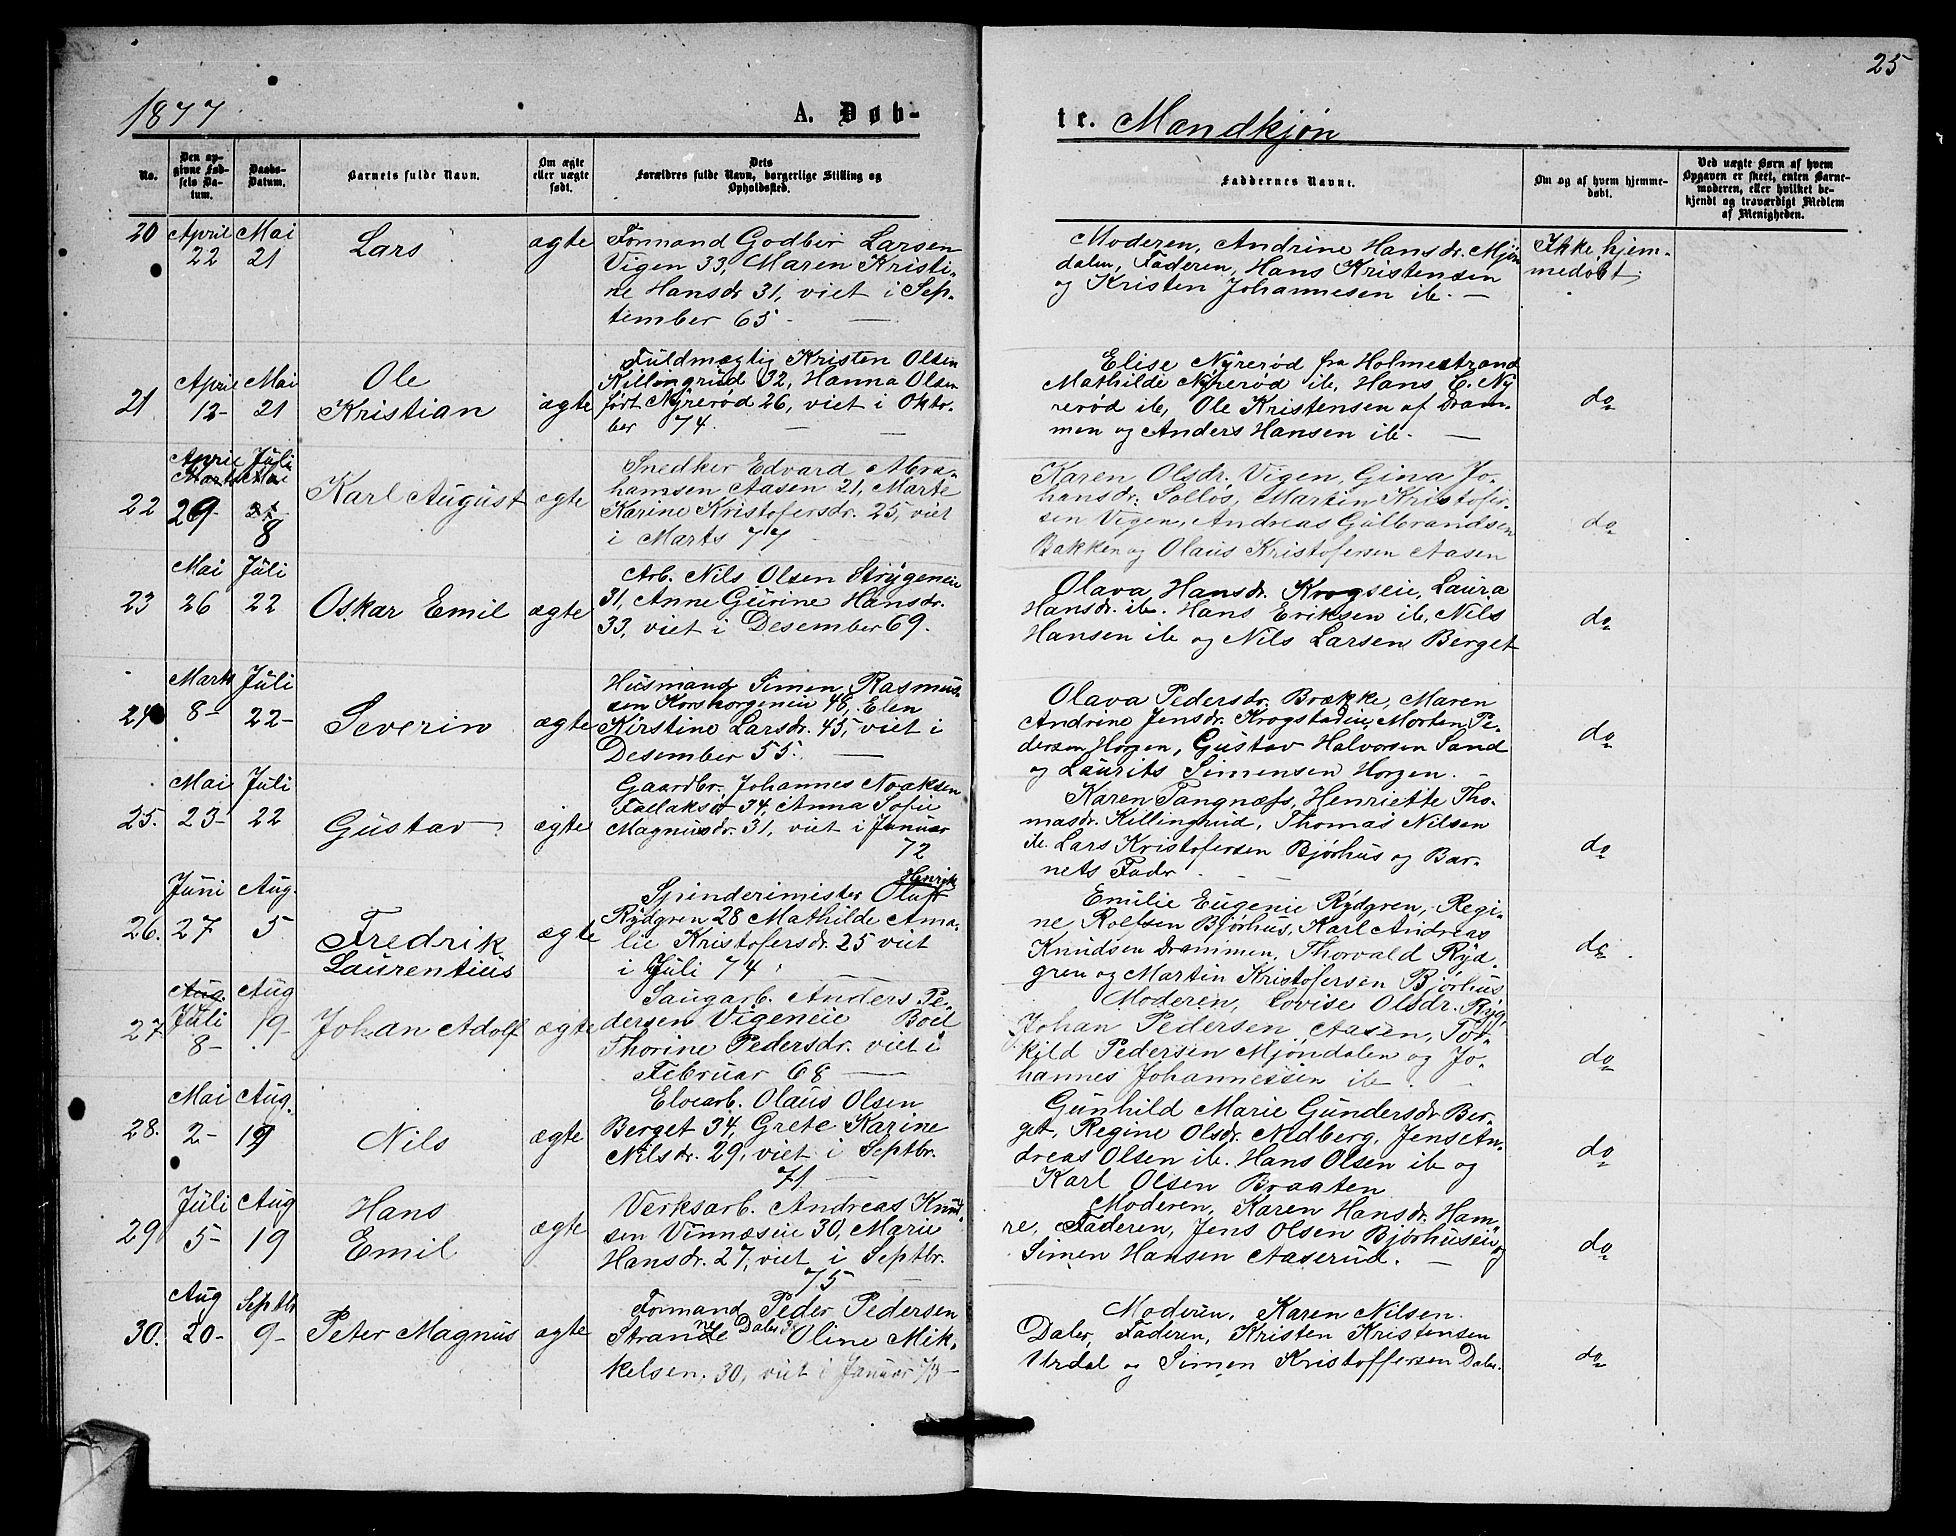 25
1877
A. Døb-
te. Mandkjøn
No.
Den op-
givne Fød-
sels Da-
tum.
Daabs-
Datum.
Barnets fulde Navn.
Om ægte
eller uægte
født.
Dets
Forældres fulde Navn, borgerlige Stilling og
Opholdssted.
Faddernes Navne.
Om og af hvem hjemme-
døbt.
Ved uægte Børn af hvem
Opgaven er skeet, enten Barne-
moderen, eller hvilket be-
kjendt og troværdigt Medlem
af Menigheden.
20
April
22
Mai
21
Lars
ægte
Formand Godber Larsen
Vigen 33, Maren Kristi-
ne Hansdr 31, viet i Sep-
tember 65.
Moderen, Andrine Hansdr. Mjøn
dalen, Faderen, Hans Kristensen
og Kristen Johannesen ib.
Ikke hjem-
medøbt
21
April
12-
Mai
21
Ole
Kristian
ægte
Fuldmægtig Kristen Olsen
Killingrud 32, Hanna Olsen
født Nyrerød 26, viet i Okto-
ber 74.
Elise Nyrerød fra Holmestrand
Mathilde Nyrerød ib, Hans C. Ny
rerød ib, Ole Kristensen af Dram-
men og Anders Hansen ib.
do
22
April
Marts
29
Juli
Mai
21
8
Karl August
ægte
Snedker Edvard Abra-
hamsen Aasen 21, Marte
Karine Kristofersdr. 25, viet
i Marts 77
Karen Olsdr. Vigen, Gina Jo-
hansdr. Solløs, Martin Kristofer-
sen Vigen, Andreas Gulbrandsen
Bakken og Olaus Kristofersen Aasen
do
23
Mai
26
Juli
22
Oskar Emil
ægte
Arb. Nils Olsen Strygeneie
31, Anne Gurine Hansdr.
33, viet i Desember 69.
Olava Hansdr. Krogseie, Laura
Hansdr. ib. Hans Eriksen ib, Nils
Hansen ib og Nils Larsen Berget
do
24
Marts
8-
Juli
22-
Severin
ægte
Husmand Simen Rasmus-
sen Korshorgeneie 48, Elen
Kirstine Larsdr. 45, viet i
Desember 55.
Olava Pedersdr. Brække, Maren
Andrine Jensdr. Krogstadeie, Morten Pe-
dersen Horgen, Gustav Halvorsen Sand
og Laurits Simensen Horgen.
do
25.
Mai
23-
Juli
22
Gustav
ægte
Gaardbr. Johannes Noaksen
34, Anna Sofie
Magnusdr. 31, viet i Januar
72
Karen Tangnæfs, Henriette Tho-
masdr. Killingrud, Thomas Nilsen
ib. Lars Kristofersen Bjørhus og Bar-
nets Fader
do
26.
Juni
27
Aug.
5
Fredrik
Laurentius
ægte
Henrik
Spinderimister Oluf
Rydgren 28 Mathilde Ama-
lie Kristofersdr. 25 viet
i Juli 74
Emilie Eugenie Rydgren, Regi-
ne Rolfsen Bjørhus, Karl Andreas
Knudsen Drammen, Thorvald Ryd-
gren og Martin Kristofersen Bjørhus
do
27
Aug.
Juli
8-
Aug
19-
Johan Adolf
ægte
Saugarb. Anders Pe-
dersen Vigeneie Boel
Thorine Pedersdr. viet i
Februar 68
Moderen, Lovise Olsdr. Ryg,
Johan Pedersen Aasen, Tor-
kild Pedersen Mjøndalen og Jo-
hannes Johannessen ib.
do
28.
Mai
2-
Aug.
19
Nils
ægte
Elvearb. Olaus Olsen
Berget 34, Grete Karine
Nilsdr. 29, viet i Septbr.
71
Gunhild Marie Gundersdr. Ber-
get, Regine Olsdr. Nedberg. Jens An-
dreas Olsen ib. Hans Olsen ib og
Karl Olsen Braaten
do
29
Juli
5-
Aug
19
Hans
Emil
ægte
Verksarb. Andreas Knud-
sen Vinnæseie 30, Marie
Hansdr. 27, viet i Septbr.
75
Moderen, Karen Hansdr. Ham-
re, Faderen, Jens Olsen Bjørhuseie og
Simen Hansen Aaserud.
do
30.
Aug
20-
Septbr
9-
Peter Magnus
ægte
Formand Peder Pedersen
Strande Daler Oline Mik-
kelsen, 30, viet i Januar 73
Moderen, Karen Nilsen
Daler, Faderen, Kristen Kristensen
Urdal og Simen Kristoffersen Daler.
do